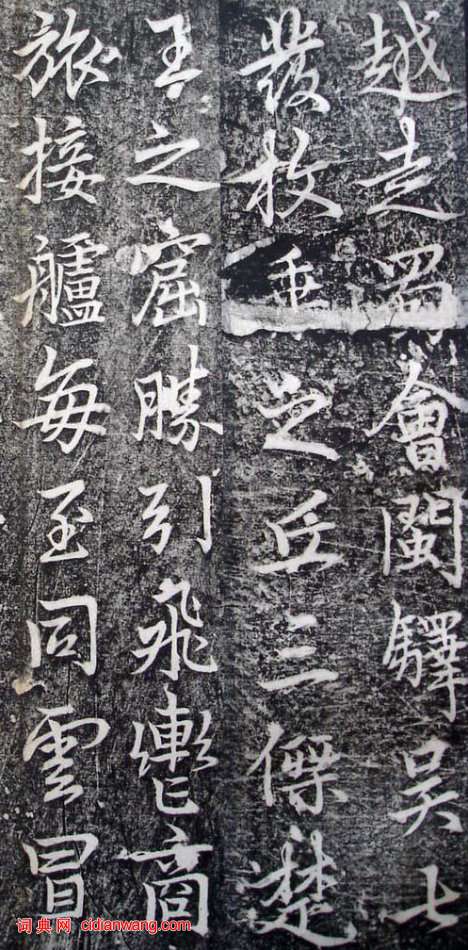 越走蜀會閩驛吳七
發枚乘之丘三傑楚
王之窟勝引飛轡商
旅接艫每至同雲冒
词典网 cidianwang.com